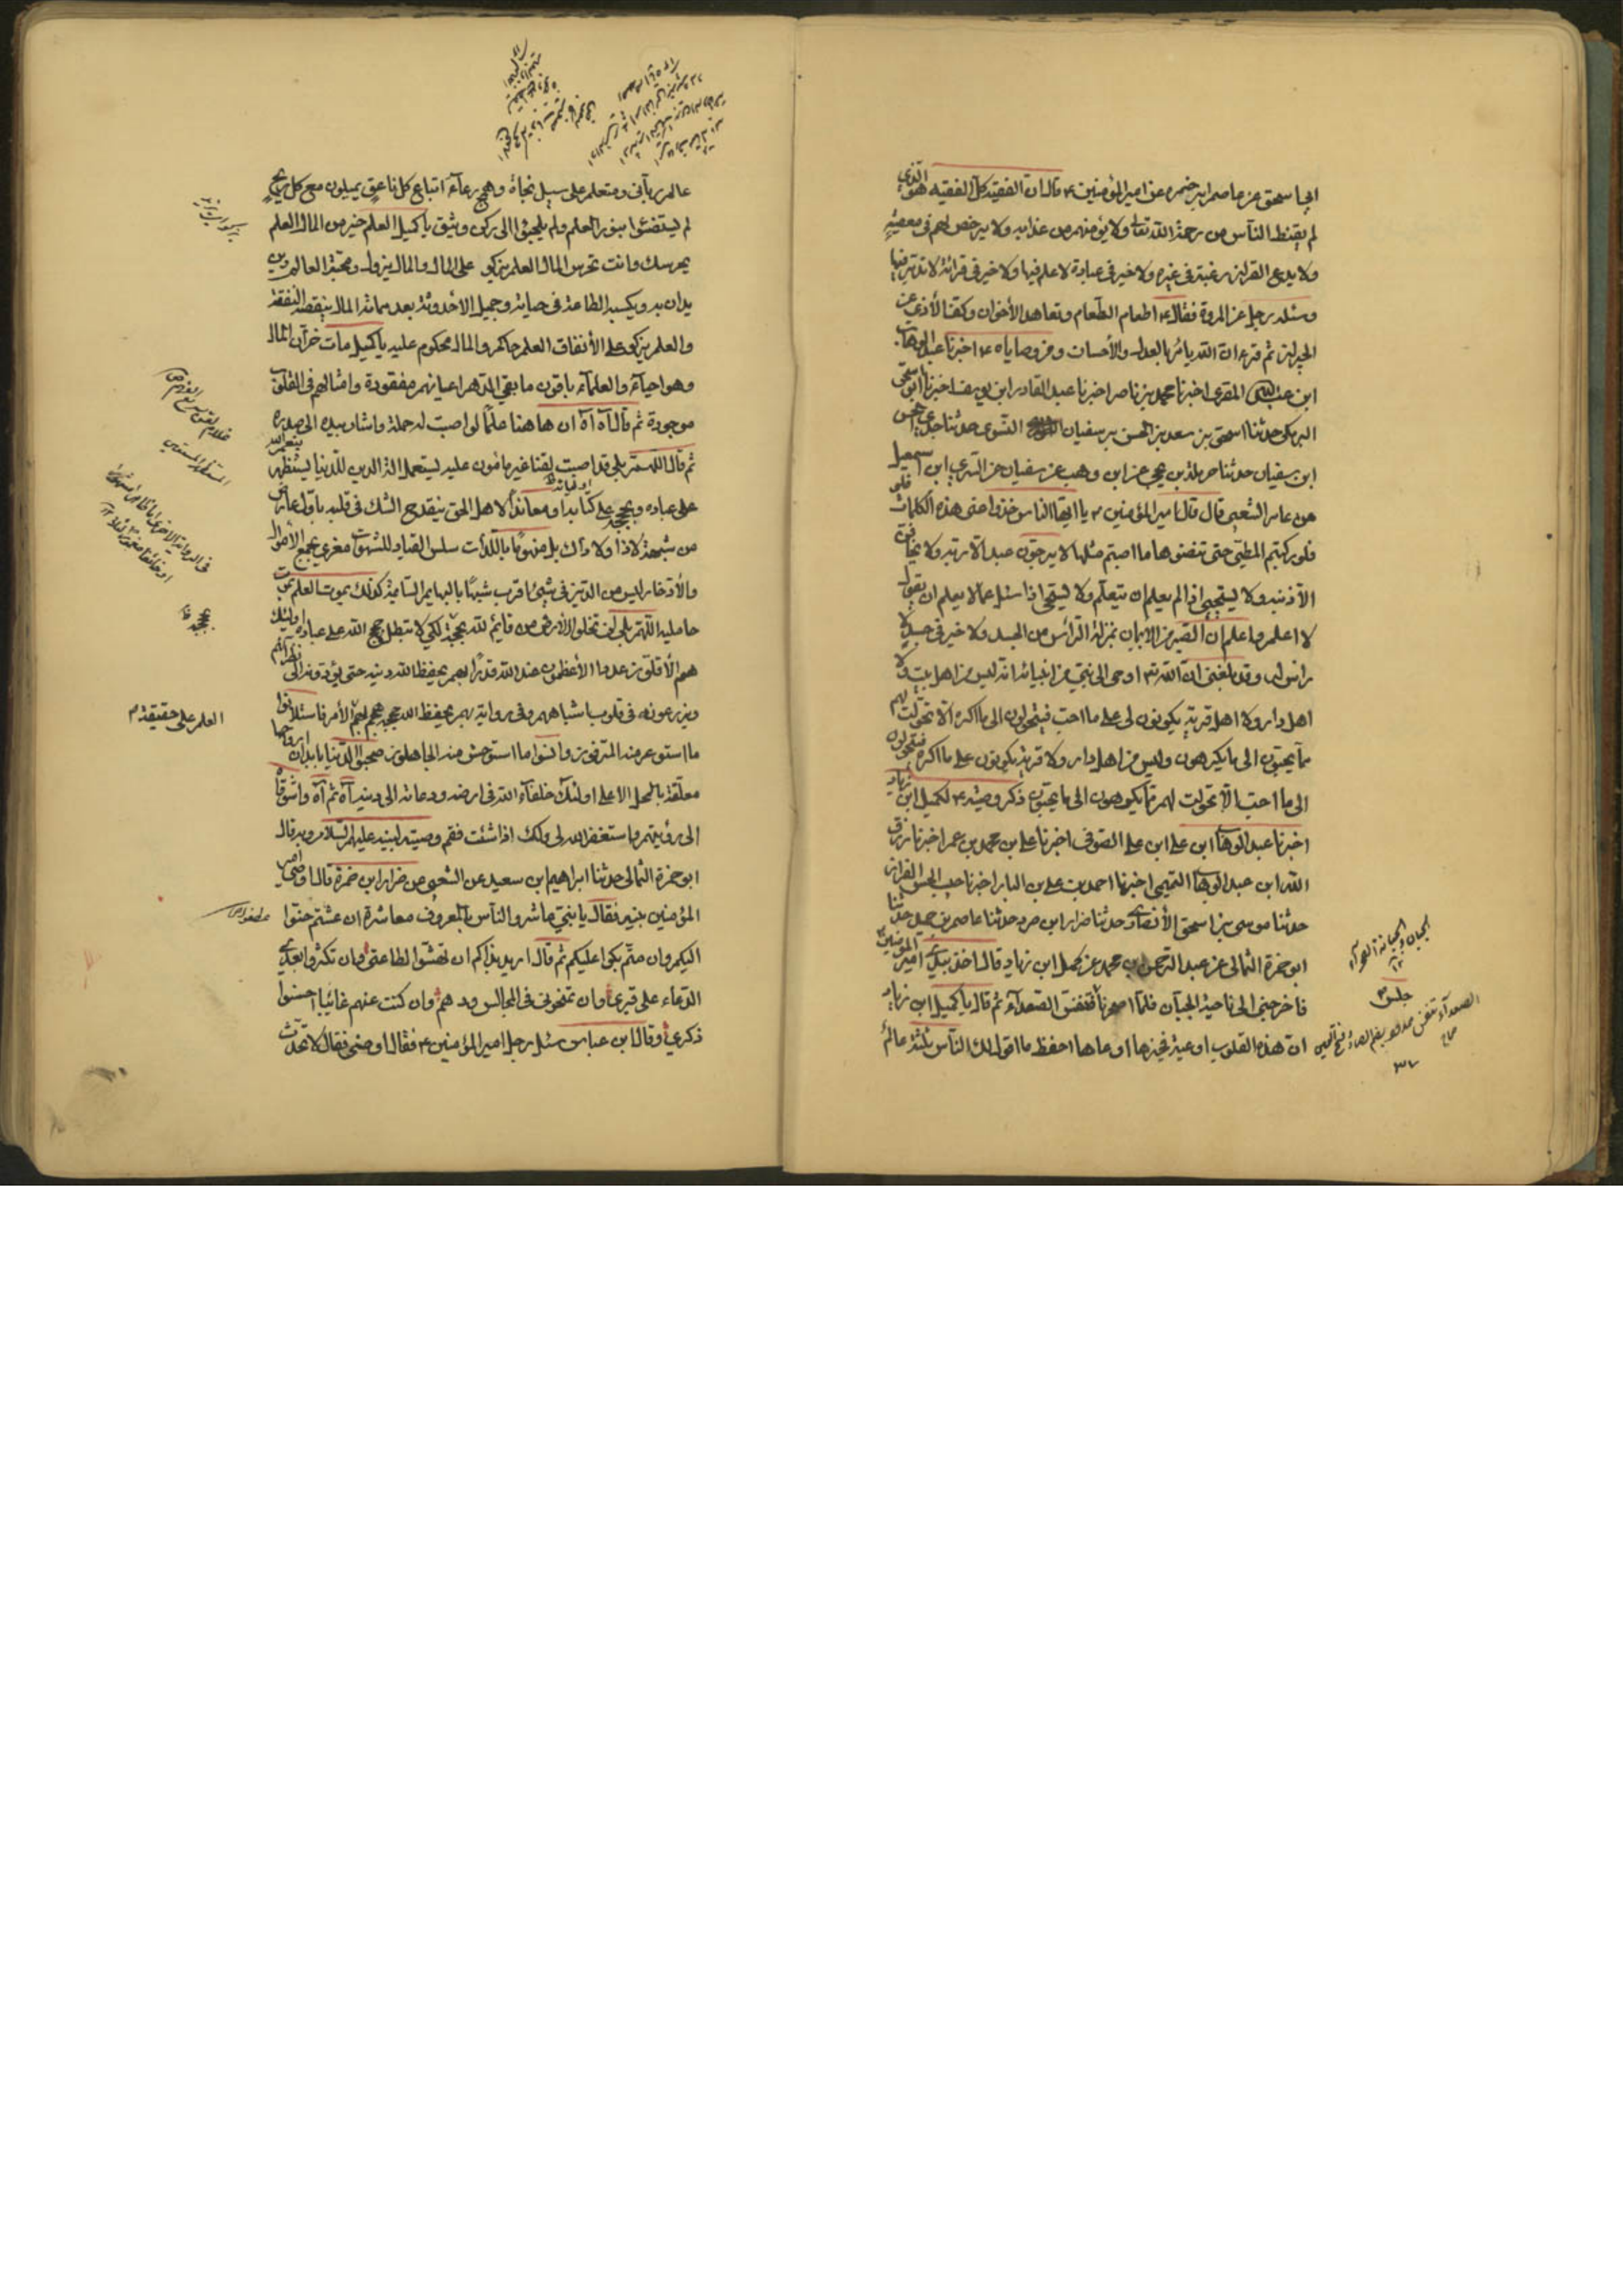 ابي اسحق عن عاصم ابن ضمره عن امير المؤمنين ع قال ان الفقيه كل الفقيه هو الذي
لم يقنط الناس من رحمة الله تعالى ولا يؤمنهم من عذابه ولا يرخص لهم في معصية
ولا يدع القران رغبة في غيره ولا خير في عبادة لا علم فيها ولا خير في قرائة لا تدبر فيها
وسئله رجل عن المروة فقال ع اطعام الطعام وتعاهد الأخوان وكف الأذى عن
الجيران ثم قرء ان الله يأمر بالعدل والأحسان ومن وصاياه ع اخبرنا عبد الوهاب
ابن المقرى اخبرنا محمد بن ناصر اخبرنا عبد القادر ابن يوسف اخبرنا ابو اسحق
البرمكى حدثنا اسحق بن سعد بن الحسن بن سفيان النسوى حدثنا جدى حسن
ابن سفيان حدثنا حرملة بن يحيى عن ابن وهب عن سفيان عن السرى ابن اسمعيل
عن عامر الشعبى قال قال امير المؤمنين ع يا ايها الناس خذوا عنى هذه الكلمات
فلو ركبتم المطى حتى تنضوها ما اصبتم مثلها لا يرجون عبد الا ربه ولا يخافن
الا ذنبه ولا يستحيى اذا لم يعلم ان يتعلم ولا يستحى اذا سئل عما لا يعلم ان يقول
لا اعلم واعلم ان الصبر من الايمان بمنزلة الرأس من الجسد ولا خير في جسد لا
راس له وقد بلغنى ان الله تع اوحى الى نبى من انبيائه انه ليس من اهل بيت ولا
اهل دار ولا اهل قرية يكونون لى على ما احب فيتحولون الى ما اكره الا تحولت لهم
مما يحبون الى ما يكرهون وليس من اهل دار ولا قرية يكونون على ما اكره فيتحولون
الى ما احب الا تحولت لهم مما يكرهون الى ما يحبون ذكر وصيته ع لكميل ابن زياد
اخبرنا عبد الوهاب ابن على ابن على الصوفى اخبرنا على بن محمد بن عمر اخبرنا رزق
الله ابن عبد الوهاب التميمى اخبرنا احمد بن على بن الباد اخبرنا حبيب الحسن القزاز
حدثنا موسى بن اسحق الأنصارى حدثنا ضرار ابن صرد حدثنا عاصم بن حميد حدثنا
ابو حمزة الثمالى عن عبد الرحمن ابن محمد عن كميل ابن زياد قال اخذ بيدى امير المؤمنين ع
فاخرجنى الى ناحية الجبان فلما اصحرنا تنفس الصعداء ثم قال يا كميل ابن زياد
ان هذه القلوب اوعية فخيرها اوعاها احفظ ما اقول لك الناس ثلثة عالم
الجبان والجبانة الصحراء
جلس
الصعداء تنفس ممدود بضم الصاد وفتح العين
صحاح
٣٧
عالم رباني ومتعلم على سبيل نجاة وهمج رعاء اتباع كل ناعق يميلون مع كل ريح
لم يستضئوا بنور العلم ولم يلجئوا الى ركن وثيق يا كميل العلم خير من المال العلم
يحرسك وانت تحرس المال العلم يزكو على المال والمال يزول ومحبة العالم دين
يدان به ويكسبه الطاعة في حياته وجميل الأحدوثة بعد مماته المال ينقصه النفقة
والعلم يزكو على الأنفاق العلم حاكم والمال محكوم عليه يا كميل مات خزان المال
وهو احياء والعلماء باقون ما بقى الدهر اعيانهم مفقودة وامثالهم في القلوب
موجودة ثم قال آه آه ان هاهنا علمًا لو اصبت له حملة واشار بيده الى صدره
ثم قال اللهم بلى قد اصبت لقنا غير مامون عليه يستعمل الة الدين للدنيا يستظهر بنعم الله
على عباده وبحججه على كتابه او معاندًا لاهل الحق ينقدح الشك في قلبه باول عارض
من شبهة لا ذا ولا ذاك بل منهومًا باللذات سلس القياد للشهوات مغرى بجمع الأموال
والأدخار ليس من الدين في شيئ اقرب شبهًا بالبهايم السائمة كذلك يموت العلم بموت
حامليه اللهم بلى لن تخلو الأرض من قايم لله بحجة لكي لا تبطل حجج الله على عباده اولئك
هم الأقلون عددا الأعظمون عند الله قدرًا بهم يحفظ الله دينه حتى يؤدونه الى نظرائهم
ويزرعونه في قلوب اشباههم وفى رواية بهم يحفظ الله حججه هجم بهم الأمر فاستلانوا
ما استوعر منه المترفون وانسوا مما استوحش منه الجاهلون صحبوا الدنيا بابدان ارواحها
معلقة بالمحل الاعلى اولئك خلفاء الله في ارضه ودعاته الى دينه آه ثم آه واشوقاه
الى رؤيتهم واستغفر الله لى ولك اذا شئت فقم وصيته لبنيه عليهم السلام وبه قال
ابو حمزة الثمالى حدثنا ابراهيم ابن سعيد عن الشعبى عن ضرار ابن ضمرة قال اوصى امير
المؤمنين بنيه فقال يا بنى عاشروا الناس بالمعروف معاشرة ان عشتم حنوا
اليكم وان متم بكوا عليكم ثم قال اريد بذاكم ان تهشوا لطاعتى وان تكثروا بعدى
الدعاء على قبرى وان تمنحونى في المجالس ودهم وان كنت عنهم غائبا احسنوا
ذكرى وقال ابن عباس سئل رجل امير المؤمنين ع فقال اوصنى فقال لا تحدث
العلم على حقيقة
بحججه